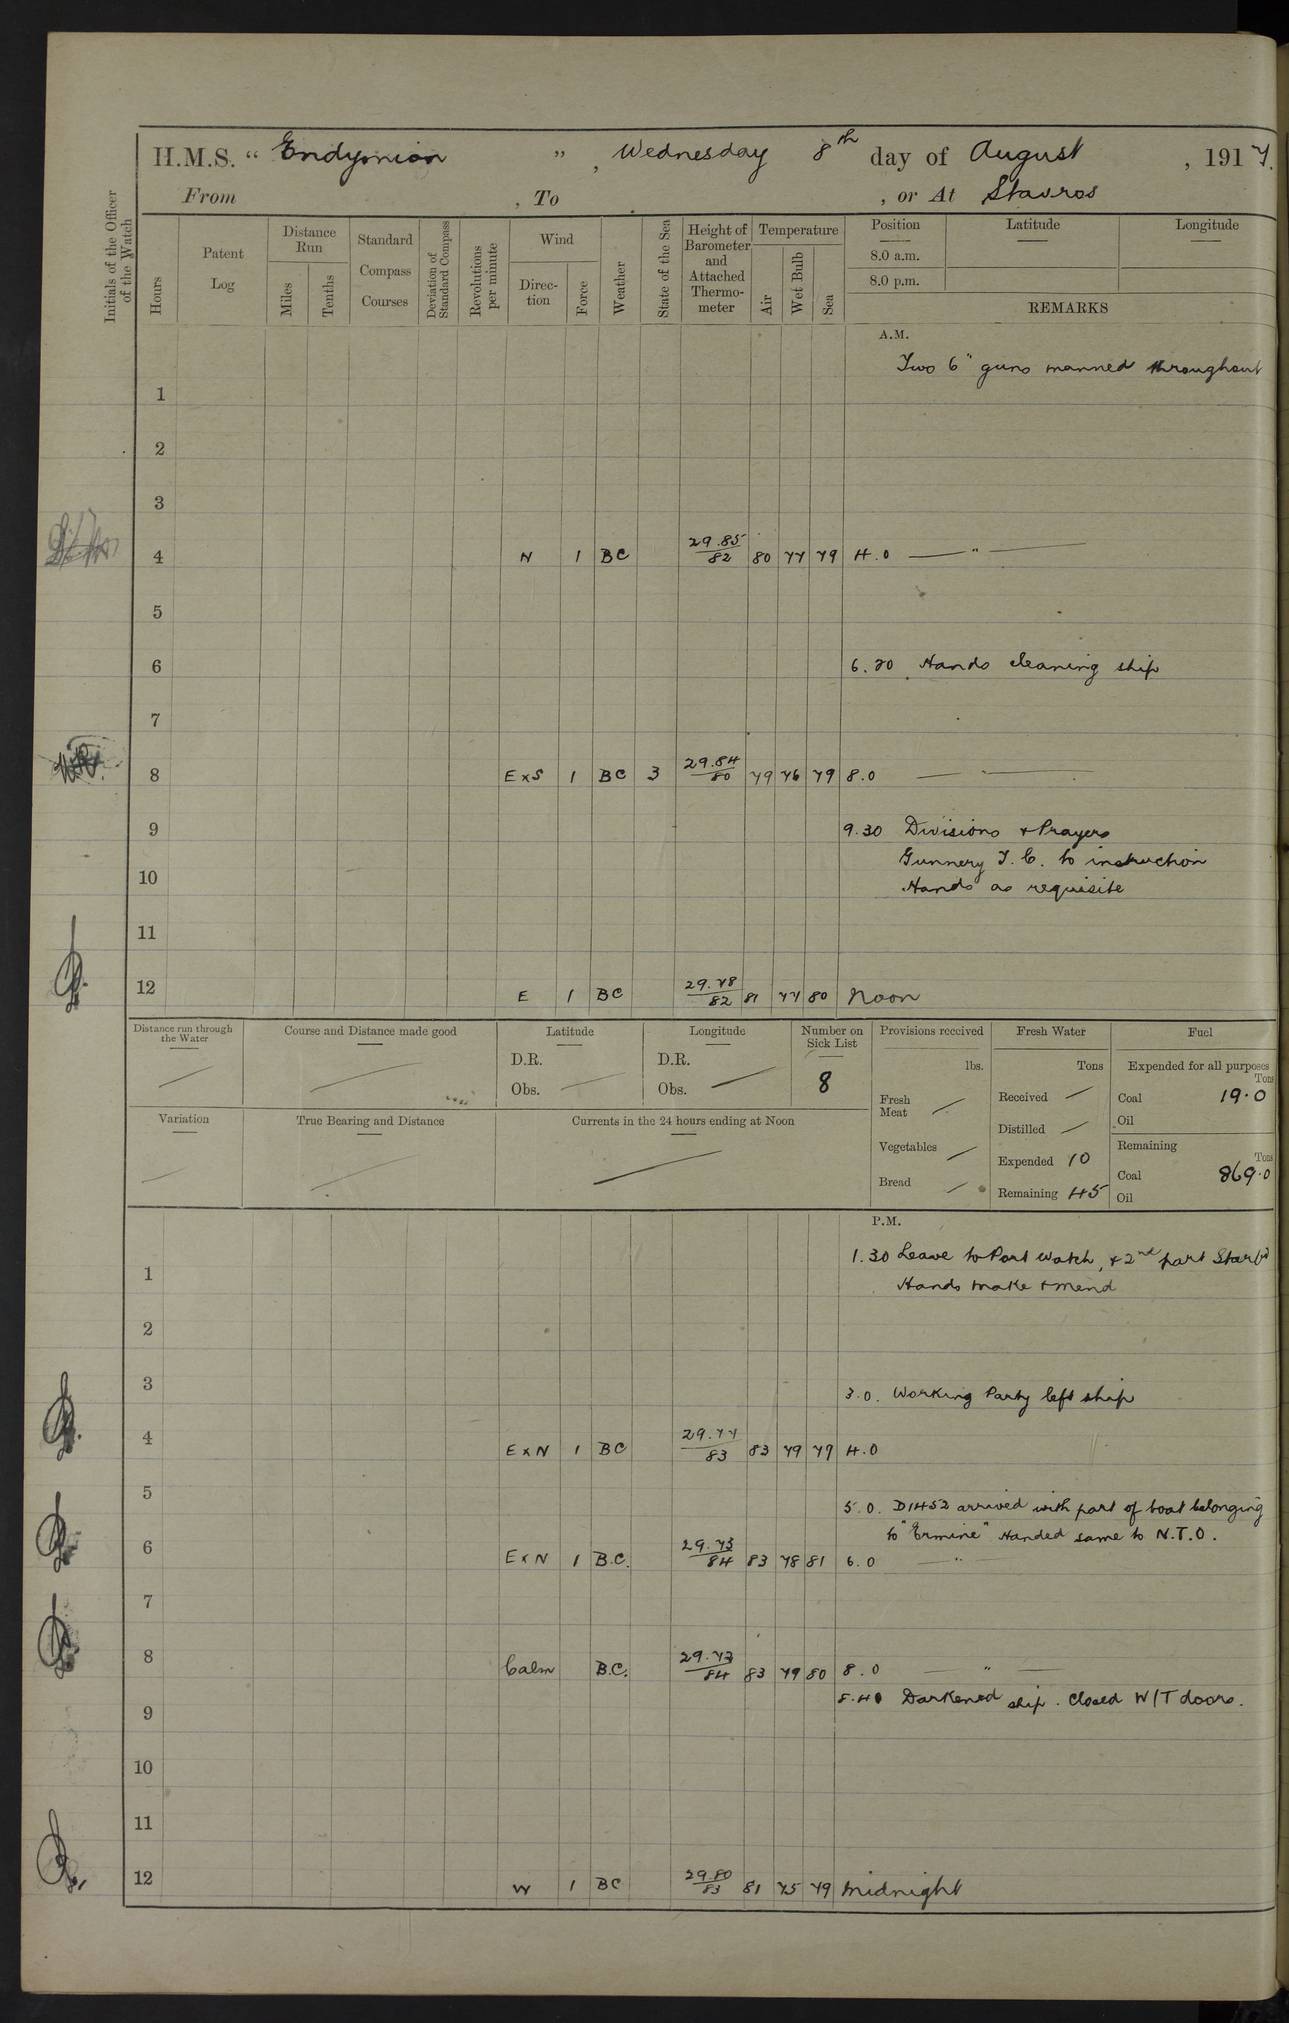 H.M.S. “ Endymion ” , Wednesday 8th day of August , 1917.
From , To , or At Stavros
Initials of the Officer of the Watch
Hours
Patent Log
Distance Run
Miles
Tenths
Standard Compass Courses
Deviation of Standard Compass
Revolutions per minute
Wind
Direc-tion
Force
Weather
State of the Sea
Height of Barometer and Attached Thermo-meter
Temperature
Air
Wet Bulb
Sea
Position Latitude Longitude
8.0 a.m.
8.0 p.m.
REMARKS
A.M.
Two 6" guns manned throughout
1
2
3
4 N 1 BC 29.85/82 80 77 79 4.0 — " —
5
6 6.20 Hands cleaning ship
7
8 E x S 1 BC 3 29.84/80 79 76 79 8.0 — " —
9 9.30 Divisions & Prayers
Gunnery T.C. to instruction
10 Hands as requisite
11
12 E 1 BC 29.78/82 81 77 80 Noon
Distance run through the Water
Course and Distance made good
Latitude
D.R.
Obs.
Longitude
D.R.
Obs.
Number on Sick List
8
Provisions received
lbs.
Fresh Meat
Vegetables
Bread
Fresh Water
Tons
Received
Distilled
Expended 10
Remaining 45
Fuel
Expended for all purposes
Tons
Coal 19.0
Oil
Remaining
Tons
Coal 869.0
Oil
Variation
True Bearing and Distance
Currents in the 24 hours ending at Noon
P.M.
1.30 Leave to Port watch, & 2nd part Starbd
1 Hands make & mend
2
3 3.0. Working Party left ship
4 E x N 1 BC 29.77/83 83 79 79 4.0
5 5.0. D1452 arrived with part of boat belonging
to "Ermine" Handed same to N.T.O.
6 E x N 1 B.C. 29.73/84 83 78 81 6.0 — " —
7
8 Calm B.C. 29.73/84 83 79 80 8.0 — " —
8.40 Darkened ship. Closed W/T doors.
9
10
11
12 W 1 BC 29.80/83 81 75 79 Midnight